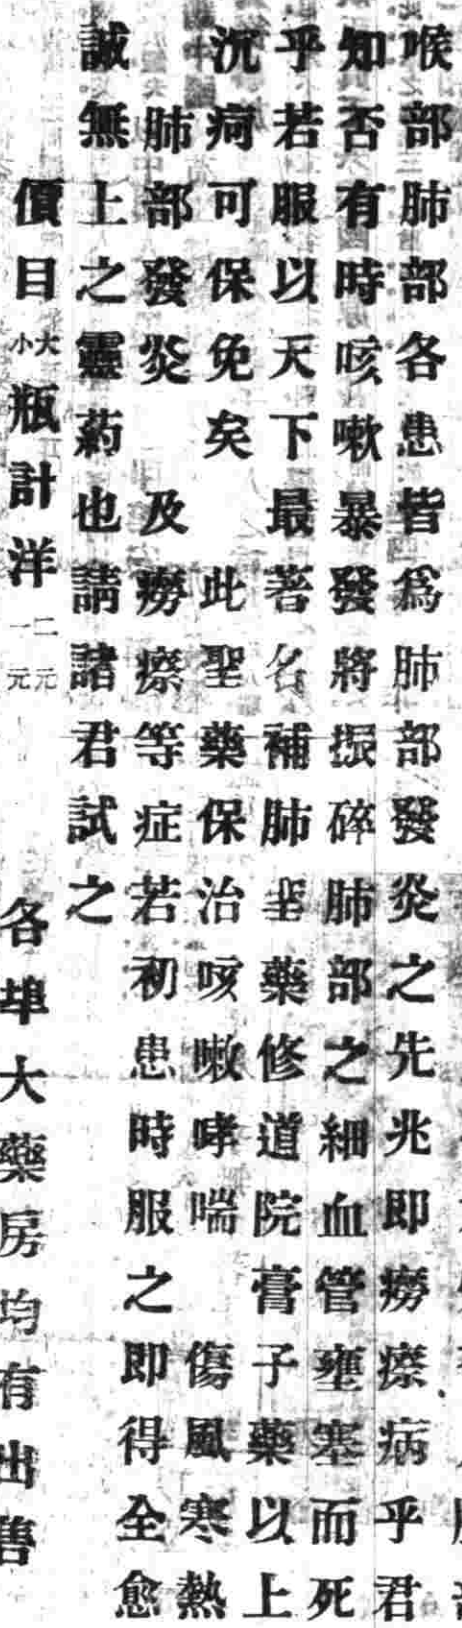 喉部肺部各患皆爲肺部發炎之先兆即癆瘵病乎君
知否有時咳嗽暴發將振碎肺部之細血管壅塞而死
乎若服以天下最著名補肺聖藥修道院膏子藥以上
沉疴可保免矣 此聖藥保治咳嗽哮喘 傷風寒熱
肺部發炎 及癆瘵等症若初患時服之即得全愈
誠無上之靈葯也請諸君試之
價目大小瓶計洋二元一元 各埠大藥房均有出售